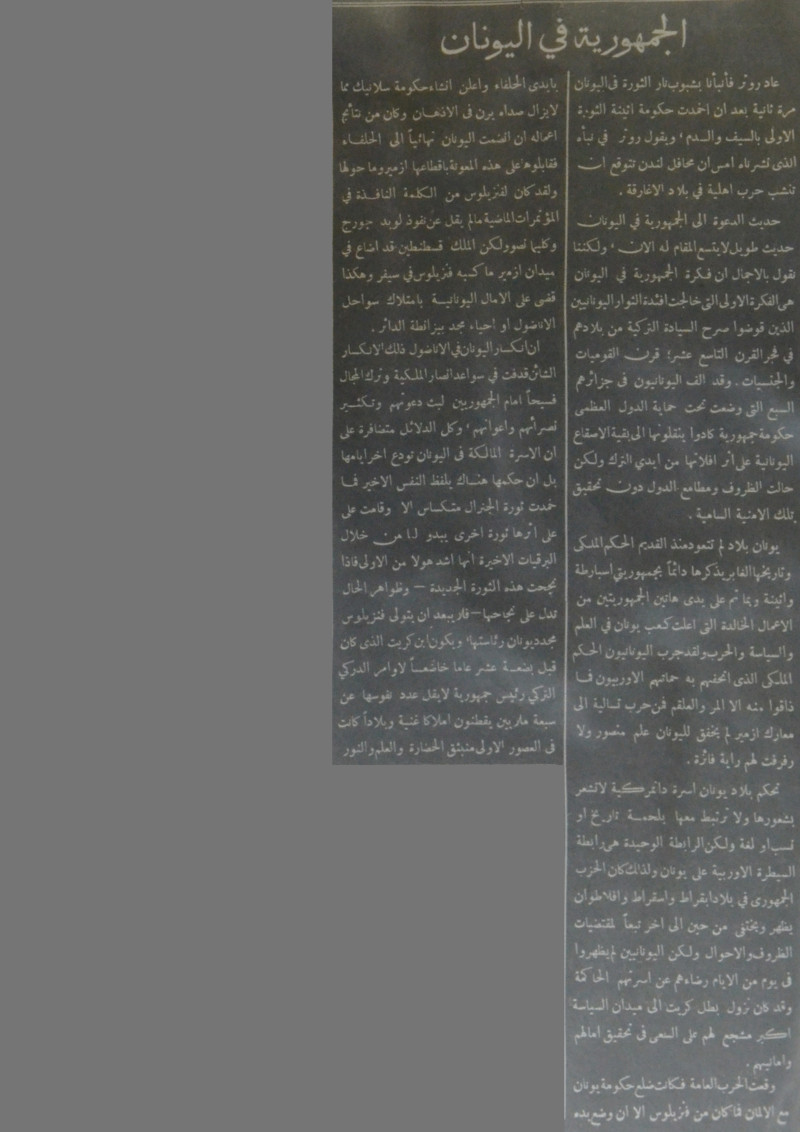 الجمهورية في اليونان
عاد روتر فأنبأنا بشبوب نار الثورة في اليونان
مرة ثانية بعد ان اخمدت حكومة اثينة الثورة
الاولى بالسيف والدم، ويقول روتر في نبأه
الذي نشرناه امس ان محافل لندن تتوقع ان
تنشب حرب اهلية في بلاد الاغارقة .
حديث الدعوة الى الجمهورية في اليونان
حديث طويل لا يتسع المقام له الان، ولكننا
نقول بالاجمال ان فكرة الجمهورية في اليونان
هي الفكرة الاولى التي خالجت افئدة الثوار اليونانيين
الذين قوضوا صرح السيادة التركية من بلادهم
في فجر القرن التاسع عشر؛ قرن القوميات
والجنسيات . وقد الف اليونانيون في جزائرهم
السبع التي وضعت تحت حماية الدول العظمى
حكومة جمهورية كادوا ينقلونها الى بقية الاصقاع
اليونانية على اثر افلاتها من ايدي الترك ولكن
حالت الظروف ومطامع الدول دون تحقيق
تلك الامنية السامية .
يونان بلاد لم تتعود منذ القديم الحكم الملكي
وتاريخها الغابر يذكرها دائماً بجمهوريتي اسبارطة
واثينة وبما تم على يدى هاتين الجمهوريتين من
الاعمال الخالدة التي اعلت كعب يونان في العلم
والسياسة والحرب ولقد جرب اليونانيون الحكم
الملكي الذي اتحفهم به حماتهم الاوربيون فما
ذاقوا منه الا المر والعلقم فمن حرب تسالية الى
معارك ازمير لم يخفق لليونان علم منصور ولا
رفرفت لهم راية فائزة .
تحكم بلاد يونان اسرة دانمركية لا تشعر
بشعورها ولا ترتبط معها بلحمة تاريخ او
نسب او لغة ولكن الرابطة الوحيدة هي رابطة
السيطرة الاوربية على يونان ولذلك كان الحزب
الجمهوري في بلاد ابقراط واسقراط وافلاطوان
يظهر ويختفي من حين الى اخر تبعاً لمقتضيات
الظروف والاحوال ولكن اليونانيين لم يظهروا
في يوم من الايام رضاءهم عن اسرتهم الحاكمة
وقد كان نزول بطل كريت الى ميدان السياسة
اكبر مشجع لهم على السعى في تحقيق امالهم
وامانيهم .
وقعت الحرب العامة فكانت ضلع حكومة يونان
مع الالمان فما كان من فنزيلوس الا ان وضع يده
بايدى الحلفاء واعلن انشاء حكومة سلانيك مما
لا يزال صداه يرن في الاذهان وكان من نتائج
اعماله ان انضمت اليونان نهائياً الى الحلفاء
فقابلوه على هذه المعونة باقطاعها ازمير وما حولها
ولقد كان لفنزيلوس من الكلمة النافذة في
المؤتمرات الماضية ما لم يقل عن نفوذ لويد جورج
وكليمنصور لكن الملك قسطنطين قد اضاع في
ميدان ازمير ما كسبه فنزيلوس في سيفر وهكذا
قضى على الامال اليونانية بامتلاك سواحل
الاناضول او احياء مجد بيزانطة الداثر .
ان انكسار اليونان في الاناضول ذلك الانكسار
الشائن قد فت في سواعد انصار الملكية وترك المجال
فسيحاً امام الجمهوريين لبث دعوتهم وتكثير
نصرائهم واعوانهم، وكل الدلائل متضافرة على
ان الاسرة المالكة في اليونان تودع اخر ايامها
بل ان حكمها هناك يلفظ النفس الاخير فما
خمدت ثورة الجنرال متكساس الا وقامت على
على اثرها ثورة اخرى يبدو لنا من خلال
البرقيات الاخيرة انها اشد هولا من الاولى فاذا
نجحت هذه الثورة الجديدة — وظواهر الحال
تدل على نجاحها — فلا يبعد ان يتولى فنزيلوس
مجدد يونان رئاستها، ويكون ابن كريت الذي كان
قبل بضعة عشر عاما خاضعاً لاوامر الدركي
التركي رئيس جمهورية لا يقل عدد نفوسها عن
سبعة ملايين يقطنون املاكا غنية وبلاداً كانت
في العصور الاولى منبثق الحضارة والعلم والنور